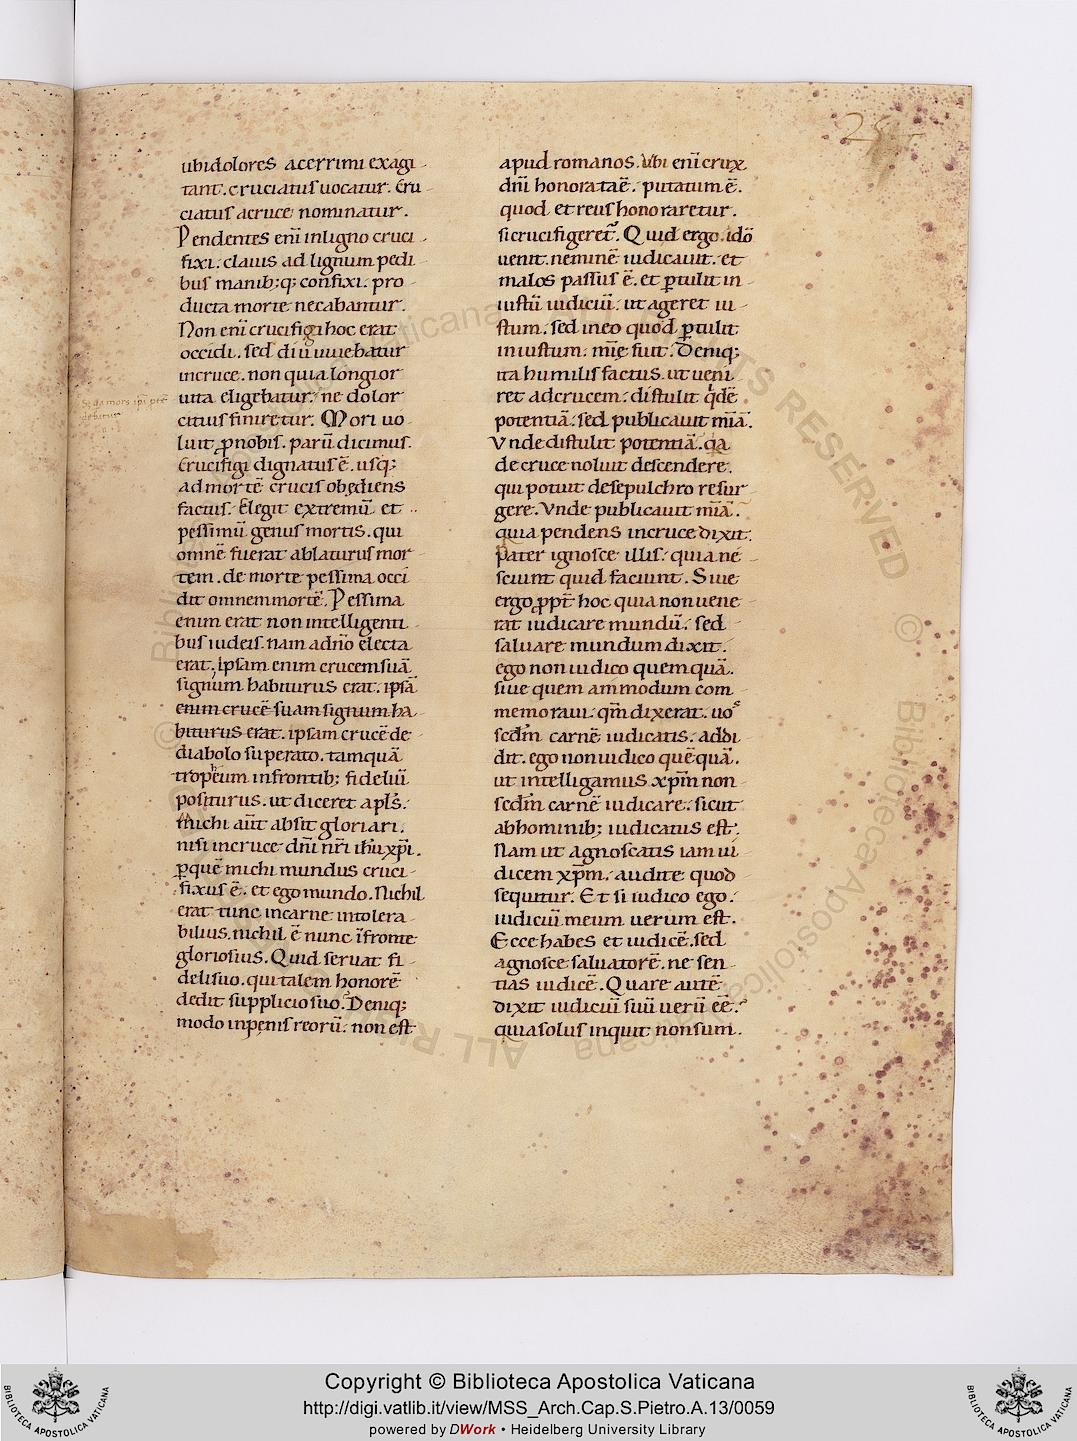 25
ubidolores acerrimi exagi
tant. cruciatus uocatur. Cru
ciatus acruce nominatur.
Pendentes eni͂ inligno cruci
fixi. clauis ad lignum pedi
bus manib;q; confixi. pro
ducta morte necabantur.
Non eni͂ crucifigi hoc erat
occidi. sed diu uiuebatur
incruce. non quia longior
uita eligebatur. ne dolor
citius finiretur. Mori uo
luit ꝓnobis. parũ dicimus.
Crucifigi dignatus ẽ. usq;
ad mortẽ crucis obędiens
factus. Elegit extremũ et
pessimũ genus mortis. qui
omnẽ fuerat ablaturus mor
tem. de morte pessima occi
dit omnem mortẽ. Pessima
enim erat non intelligenti
bus iudeis. nam adño electa
erat. Ipsam enim crucem suã
signum habiturus erat. ipsã
enim crucẽ suam signum ha
biturus erat. ipsam crucẽ de
diabolo superato. tamquã
tropeum infrontib; fideliũ
positurus. ut diceret apls̃.
Michi aut̃ absit gloriari.
nisi incruce dñi nr̃i ihũ xp̃i.
ꝑquẽ michi mundus cruci
fixus ẽ. et ego mundo. Nichil
erat tunc incarne intolera
bilius. nichil ẽ nunc ĩfronte
gloriosius. Quid seruat fi
deli suo. qui talem honorẽ
dedit supplicio suo. Deniq;
modo inpęnis reorũ. non est
apud romanos. Ubi eni͂ crux
dñi honorataẽ. putatum ẽ.
quod et reus honoraretur.
si crucifigeret̃. Quid ergo. idõ
uenit. neminẽ iudicauit. et
malos passus ẽ. et ꝑtulit in
iustũ iudiciũ. ut ageret iu
stum. sed ineo quod ꝑtulit
iniustum. mĩę fuit. Deniq;
ita humilis factus. ut ueni
ret adcrucem. distulit q̇dẽ
potentiã. sed publicauit mĩã.
Unde distulit potentiã. qa
de cruce noluit descendere.
qui potuit desepulchro resur
gere. Unde publicauit mĩã.
quia pendens incruce dixit.
Pater ignosce illis. quia ne
sciunt quid faciunt. Siue
ergo ꝓpt̃ hoc quia non uene
rat iudicare mundũ. sed
saluare mundum dixit.
ego non iudico quemquã.
siue quem ammodum com
memoraui. qm̃ dixerat. uos
scdm̃ carnẽ iudicatis. addi
dit. ego non iudico quẽquã.
ut intelligamus xp̃m non
scdm̃ carnẽ iudicare. sicut
abhominib; iudicatus est.
Nam ut agnoscatis iam iu
dicem xp̃m. audite quod
sequitur. Et si iudico ego.
iudiciũ meum uerum est.
Ecce habes et iudicẽ. sed
agnosce saluatorẽ. ne sen
tias iudicẽ. Quare autẽ
dixit iudiciũ suũ uerũ eẽ.
quia solus inquit non sum.
Copyright © Biblioteca Apostolica Vaticana
http://digi.vatlib.it/view/MSS_Arch.Cap.S.Pietro.A.13/0059
powered by DWork • Heidelberg University Library
BIBLIOTECA APOSTOLICA VATICANA
BIBLIOTECA APOSTOLICA VATICANA